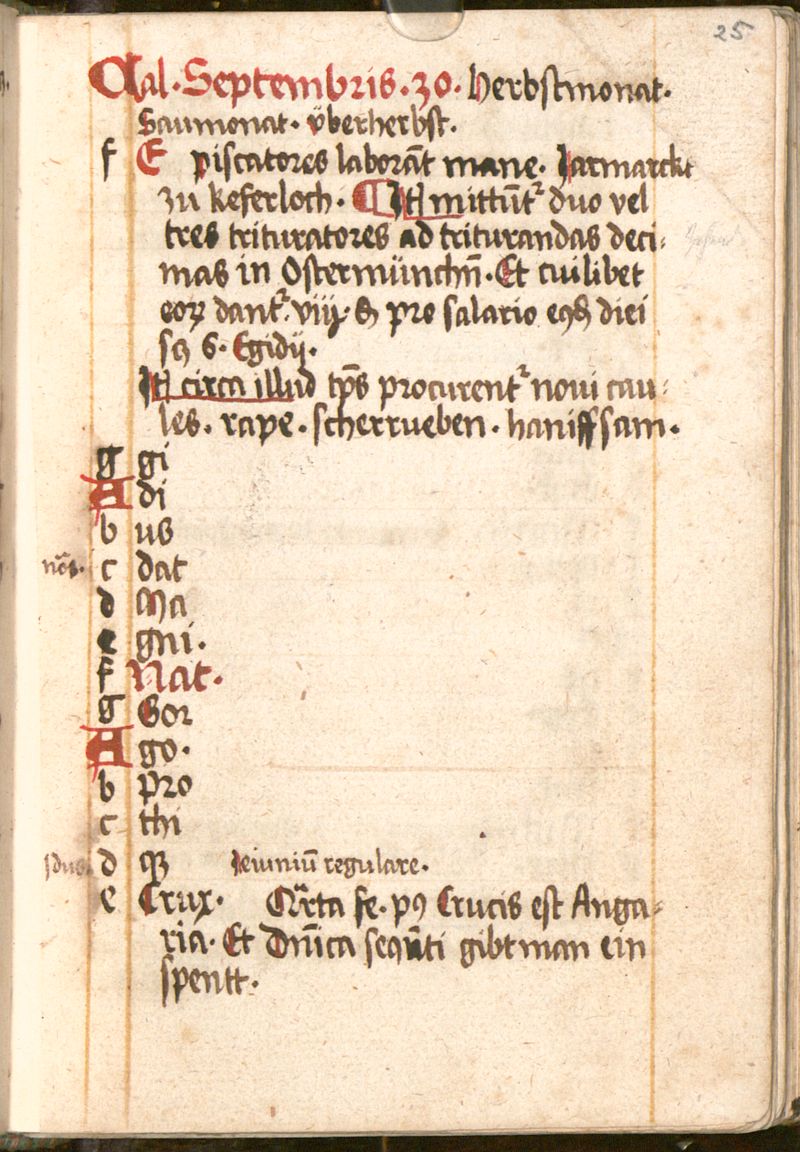 25
Kal. Septembris. 30. Herbstmonat.
Saumonat. v̈berherbst.
f E piscatores laborāt mane. Jarmarckt
zu keferloch. ¶ Itm̄ mittūt᷑ duo vel
tres trituratores ad triturandas deci-
mas in Ostermünchn̄. Et cuilibet
eoꝝ dant᷑ viij. ₰ pro salario eꝯ₰ diei
sꝫ 6. Egidij.
Itm̄ circa illud tp̄s procurent᷑ noui cau-
les. rape. scherrueben. haniffsam.
g gi
A di
b us
nōs. c dat
d Ma
e gni.
f Nat.
g Gor
A go.
b pro
c thi
Idus d qꝫ Ieiuniū regulare.
e Crux. Qrta fe. pꝯ Crucis est Anga-
ria. Et Dn̄ica seqn̄ti gibt man ein
spentt.